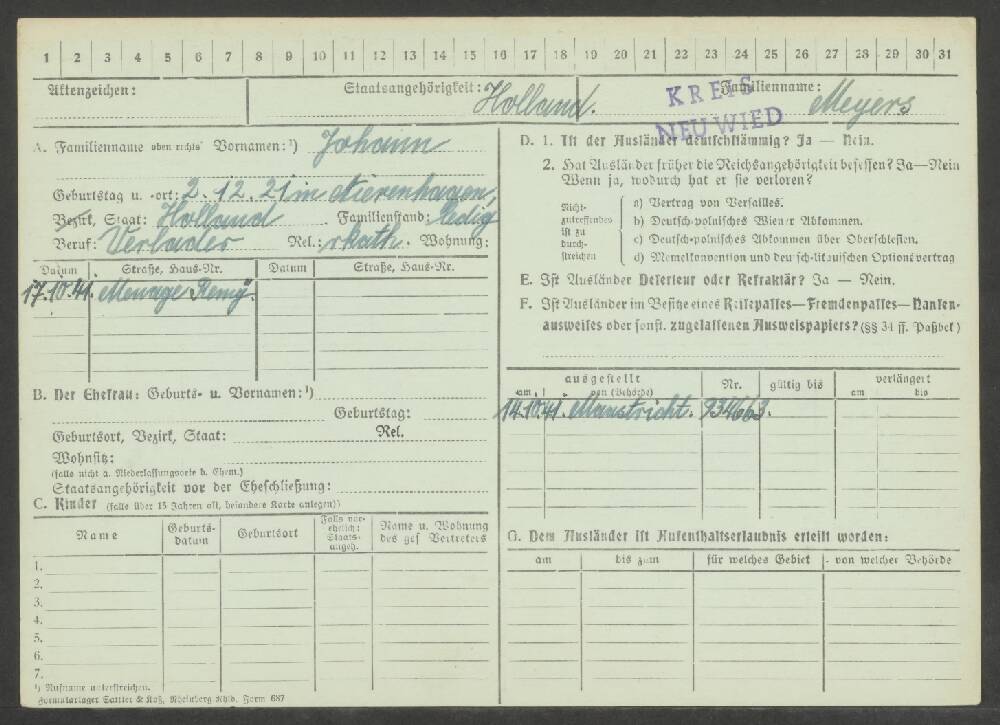 1 2 3 4 5 6 7 8 9 10 11 12 13 14 15 16 17 18 19 20 21 22 23 24 25 26 27 28 29 30 31
Aktenzeichen: Staatsangehörigkeit: Holland. Familienname: Meyers
KREIS
NEUWIED
A. Familienname oben rechts Vornamen:¹) Johann
Geburtstag u. -ort: 2.12.21 in Nierenhagen,
Bezirk, Staat: Holland Familienstand: ledig
Beruf: Verlader Rel.: r. kath. Wohnung:
Datum Straße, Haus-Nr. Datum Straße, Haus-Nr.
17.10.41. Menage Remy.
B. Der Ehefrau: Geburts- u. Vornamen:¹)
Geburtstag:
Geburtsort, Bezirk, Staat: Rel.
Wohnsitz:
(falls nicht a. Niederlassungsorte d. Ehem.)
Staatsangehörigkeit vor der Eheschließung:
C. Kinder (falls über 15 Jahren alt, besondere Karte anlegen))
Name Geburts-datum Geburtsort Falls vor-ehelich: Staats-angeh. Name u. Wohnung des ges Vertreters
1.
2.
3.
4.
5.
6.
7.
¹) Rufname unterstreichen.
Formularlager Sattler & Koß, Rheinberg Rhld. Form 687
D. 1. Ist der Ausländer deutschstämmig? Ja — Nein.
2. Hat Ausländer früher die Reichsangehörigkeit besessen? Ja—Nein
Wenn ja, wodurch hat er sie verloren?
Nicht-zutreffendes ist zu durch-streichen
a) Vertrag von Versailles.
b) Deutsch-polnisches Wiener Abkommen.
c) Deutsch-polnisches Abkommen über Oberschlesien.
d) Memelkonvention und deutsch-litauischen Optionsvertrag
E. Ist Ausländer Deserteur oder Refraktär? Ja — Nein.
F. Ist Ausländer im Besitze eines Reisepasses—Fremdenpasses—Nansen-
ausweises oder sonst. zugelassenen Ausweispapiers? (§§ 34 ff. Paßbek)
ausgestellt Nr. gültig bis verlängert
am von (Behörde) am bis
14.10.41. Maastricht. 934663.
G. Dem Ausländer ist Aufenthaltserlaubnis erteilt worden:
am bis zum für welches Gebiet von welcher Behörde